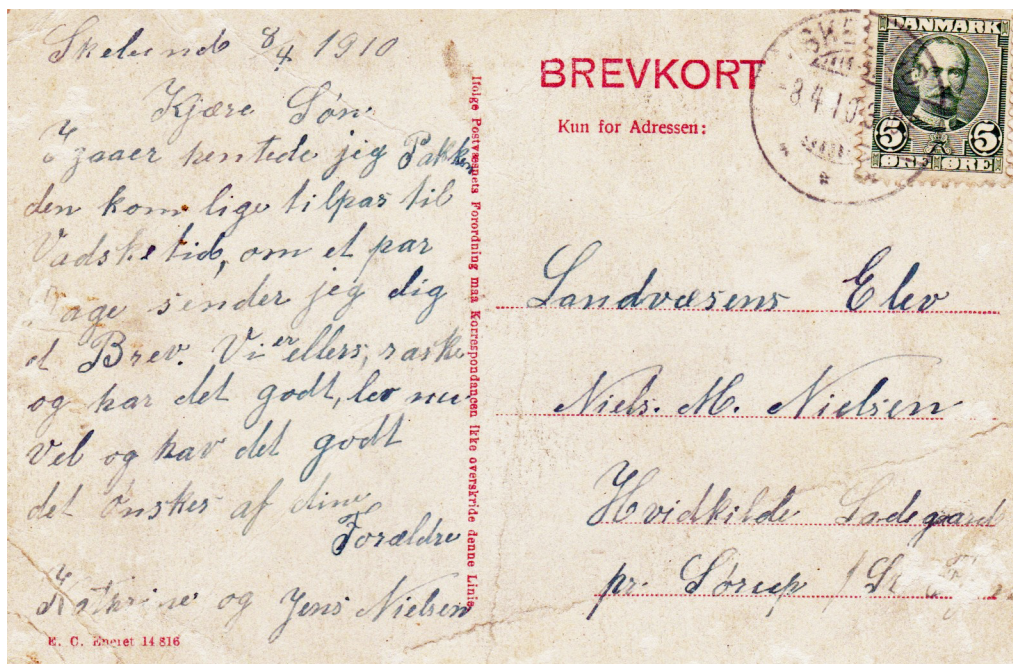 Skelund 8/4 1910
Kjære Søn
I gaaer hentede jeg Pakken
den kom lige tilpas til
Vadsketid, om et par
Dage sender jeg dig
et Brev. Vi er ellers, raske
og har det godt, lev nu
vel og hav det godt
det ønskes af dine
Forældre
Kathrine og Jens Nielsen
E. C. Eneret 14816
Ifølge Postvæsnets Forordning maa Korrespondancen ikke overskride denne Linie
BREVKORT
Kun for Adressen:
DANMARK
5 5
ØRE ØRE
8.4.10
Landvæsens Elev
Niels. M. Nielsen
Hvidkilde Ladegaard
pr. Sørup